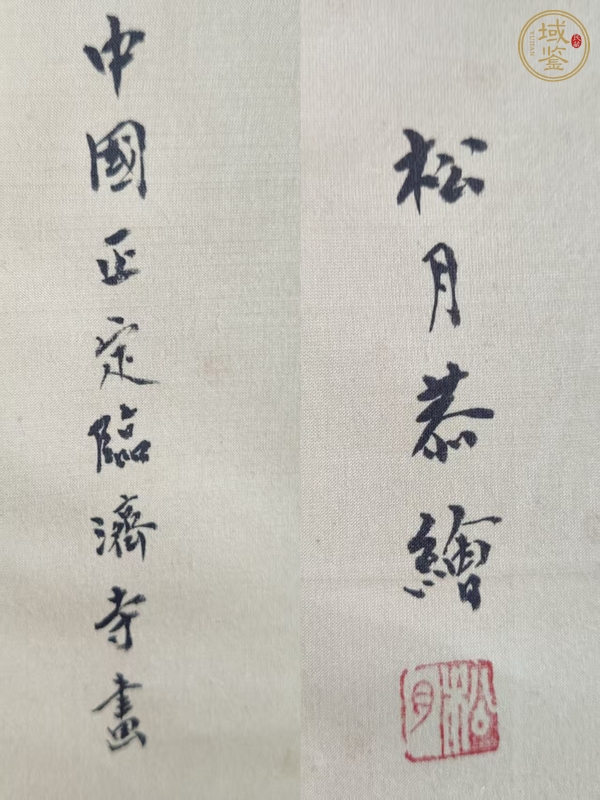 中國正定臨濟寺畫
松月恭繪
松月
域鉴
YUJIAN